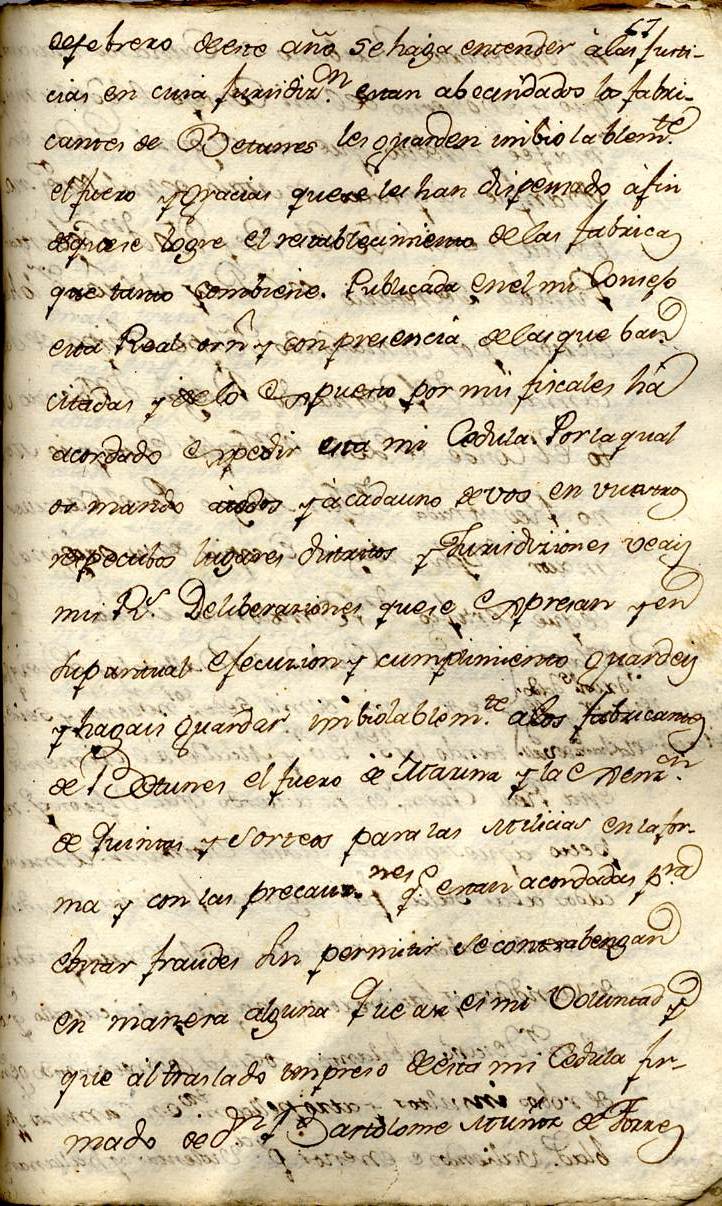 67
de febrero de este año se haga entender à las Justi-
cias en cuia Jurisdizn. estan abecindados los fabri-
cantes de Betunes les guarden imbiolablemte.
el fuero y gracias que se les han dispensado à fin
de que se logre el restablecimiento de las fabricas
que tanto combiene. Publicada en el mi Consejo
esta Real orn. y con presencia de las que ban
citadas y de lo Expuesto por mis fiscales há
acordado Expedir esta mi Cedula. Por la qual
os mando à todos y à cada uno de vos en vuestros
respectibos lugares distritos y Jurisdiziones veais
mis Rs. Deliberaziones que se Expresan y en
su puntual ejecuzion y cumplimiento guardeis
y hagais guardar imbiolablemte. a los fabricantes
de Betunes el fuero de Marina y la Exenzon.
de Quintas y Sorteos para las Milicias en la for-
ma y con las precauznes. q. estan acordadas pra
ebitar fraudes sin permitir se contrabengan
en manera alguna Que asi es mi Voluntad y
que al traslado impreso de esta mi Cedula fir-
mado de Dn. Bartolome Muñoz de Torres